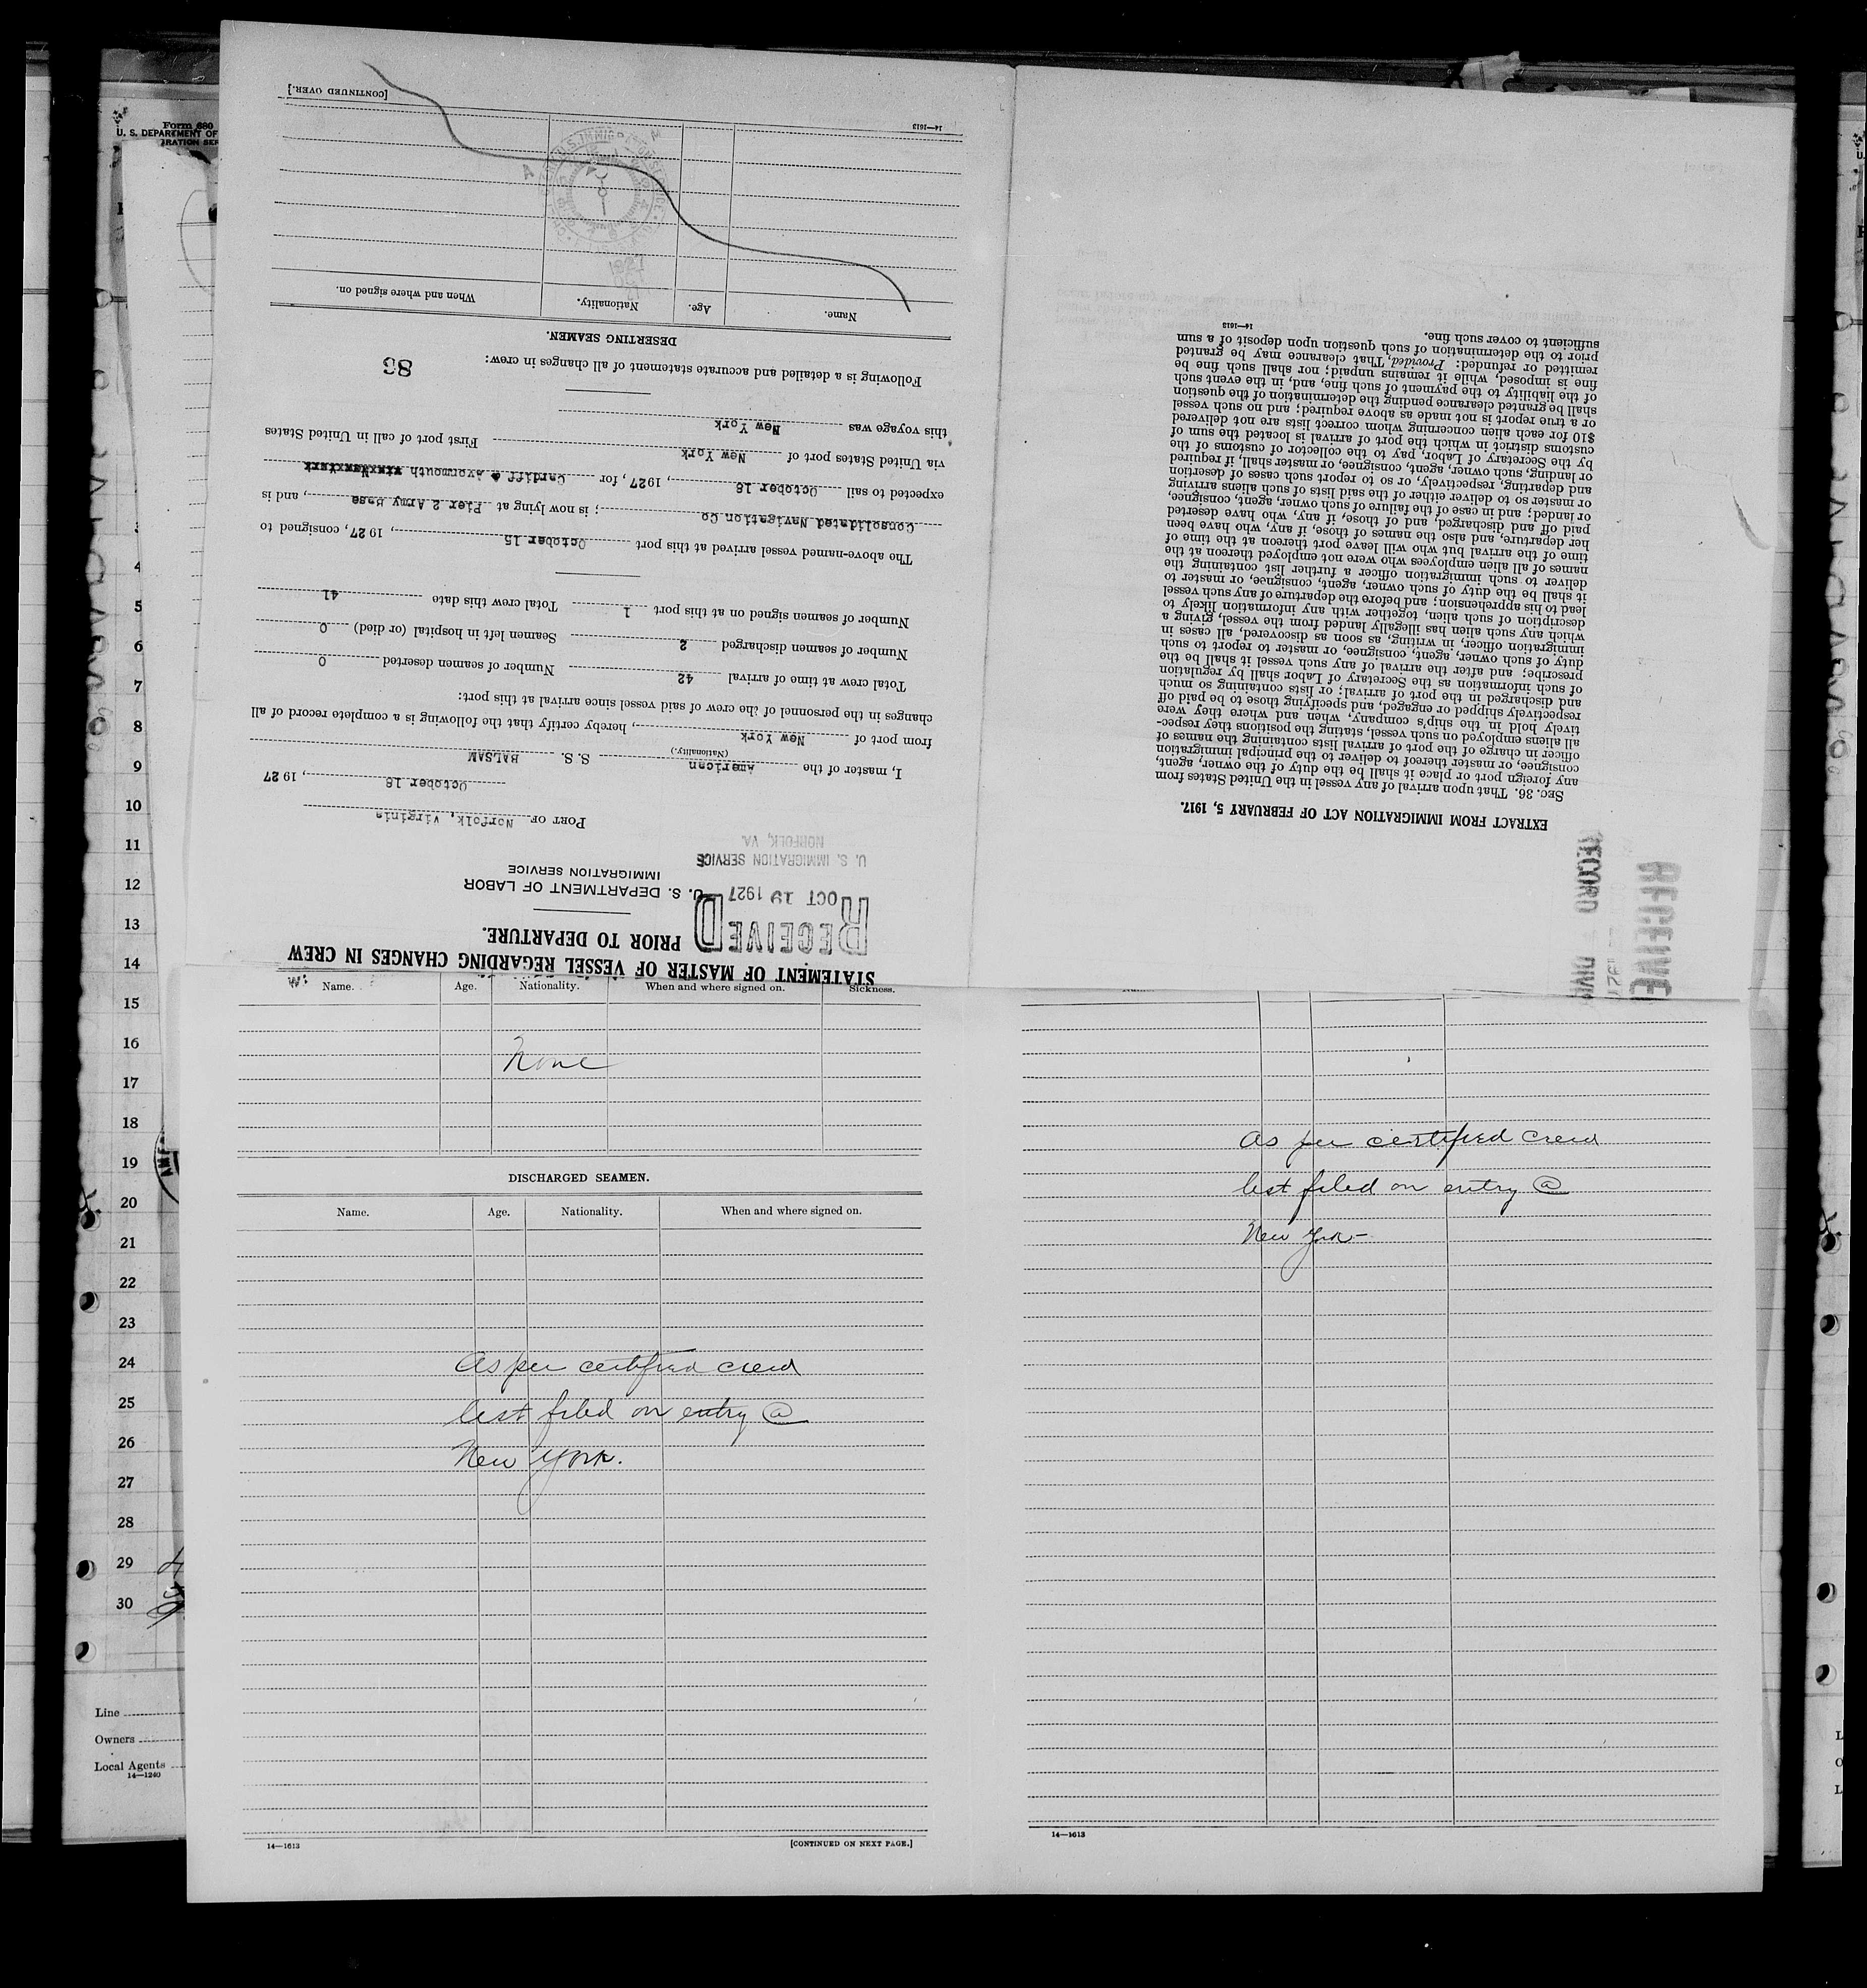 STATEMENT OF MASTER OF VESSEL REGARDING CHANGES IN CREW
PRIOR TO DEPARTURE.
RECEIVED
OCT 19 1927
U. S. IMMIGRATION SERVICE
NORFOLK, VA.
U. S. DEPARTMENT OF LABOR
IMMIGRATION SERVICE
PORT OF Norfolk, Virginia
October 18, 1927
I, master of the American S. S. BALSAM
(Nationality.)
from port of New York, hereby certify that the following is a complete record of all
changes in the personnel of the crew of said vessel since arrival at this port:
Total crew at time of arrival 42 Number of seamen deserted 0
Number of seamen discharged 2 Seamen left in hospital (or died) 0
Number of seamen signed on at this port 1 Total crew this date 41
The above-named vessel arrived at this port October 15, 1927, consigned to
Consolidated Navigation Co; is now lying at Pier 2 Army Base, and is
expected to sail October 18, 1927, for Cardiff & Avonmouth
via United States port of New York First port of call in United States
this voyage was New York
Following is a detailed and accurate statement of all changes in crew:
86
DESERTING SEAMEN.
Name. Age. Nationality. When and where signed on.
1927
14—1613
[CONTINUED OVER.]
EXTRACT FROM IMMIGRATION ACT OF FEBRUARY 5, 1917.
SEC. 36. That upon arrival of any vessel in the United States from
any foreign port or place it shall be the duty of the owner, agent,
consignee, or master thereof to deliver to the principal immigration
officer in charge of the port of arrival lists containing the names of
all aliens employed on such vessel, stating the positions they respec-
tively hold in the ship's company, when and where they were
respectively shipped or engaged, and specifying those to be paid off
and discharged in the port of arrival; or lists containing so much
of such information as the Secretary of Labor shall by regulation
prescribe; and after the arrival of any such vessel it shall be the
duty of such owner, agent, consignee, or master to report to such
immigration officer, in writing, as soon as discovered, all cases in
which any such alien has illegally landed from the vessel, giving a
description of such alien, together with any information likely to
lead to his apprehension; and before the departure of any such vessel
it shall be the duty of such owner, agent, consignee, or master to
deliver to such immigration officer a further list containing the
names of all alien employees who were not employed thereon at the
time of the arrival but who will leave port thereon at the time of
her departure, and also the names of those, if any, who have been
paid off and discharged, and of those, if any, who have deserted
or landed; and in case of the failure of such owner, agent, consignee,
or master so to deliver either of the said lists of such aliens arriving
and departing, respectively, or so to report such cases of desertion
or landing, such owner, agent, consignee, or master shall, if required
by the Secretary of Labor, pay to the collector of customs of the
customs district in which the port of arrival is located the sum of
$10 for each alien concerning whom correct lists are not delivered
or a true report is not made as above required; and no such vessel
shall be granted clearance pending the determination of the question
of the liability to the payment of such fine, and, in the event such
fine is imposed, while it remains unpaid; nor shall such fine be
remitted or refunded: Provided, That clearance may be granted
prior to the determination of such question upon deposit of a sum
sufficient to cover such fine.
14—1613
RECORD
Name. Age. Nationality. When and where signed on. Sickness.
None
DISCHARGED SEAMEN.
Name. Age. Nationality. When and where signed on.
As per certified crew
list filed on entry @
New York.
14—1613
[CONTINUED ON NEXT PAGE.]
As per certified crew
list filed on entry @
New York—
14—1613
Form 680
U. S. DEPARTMENT OF
4
5
6
7
8
9
10
11
12
13
14
15
16
17
18
19
20
21
22
23
24
25
26
27
28
29
30
Line
Owners
Local Agents
14—1240